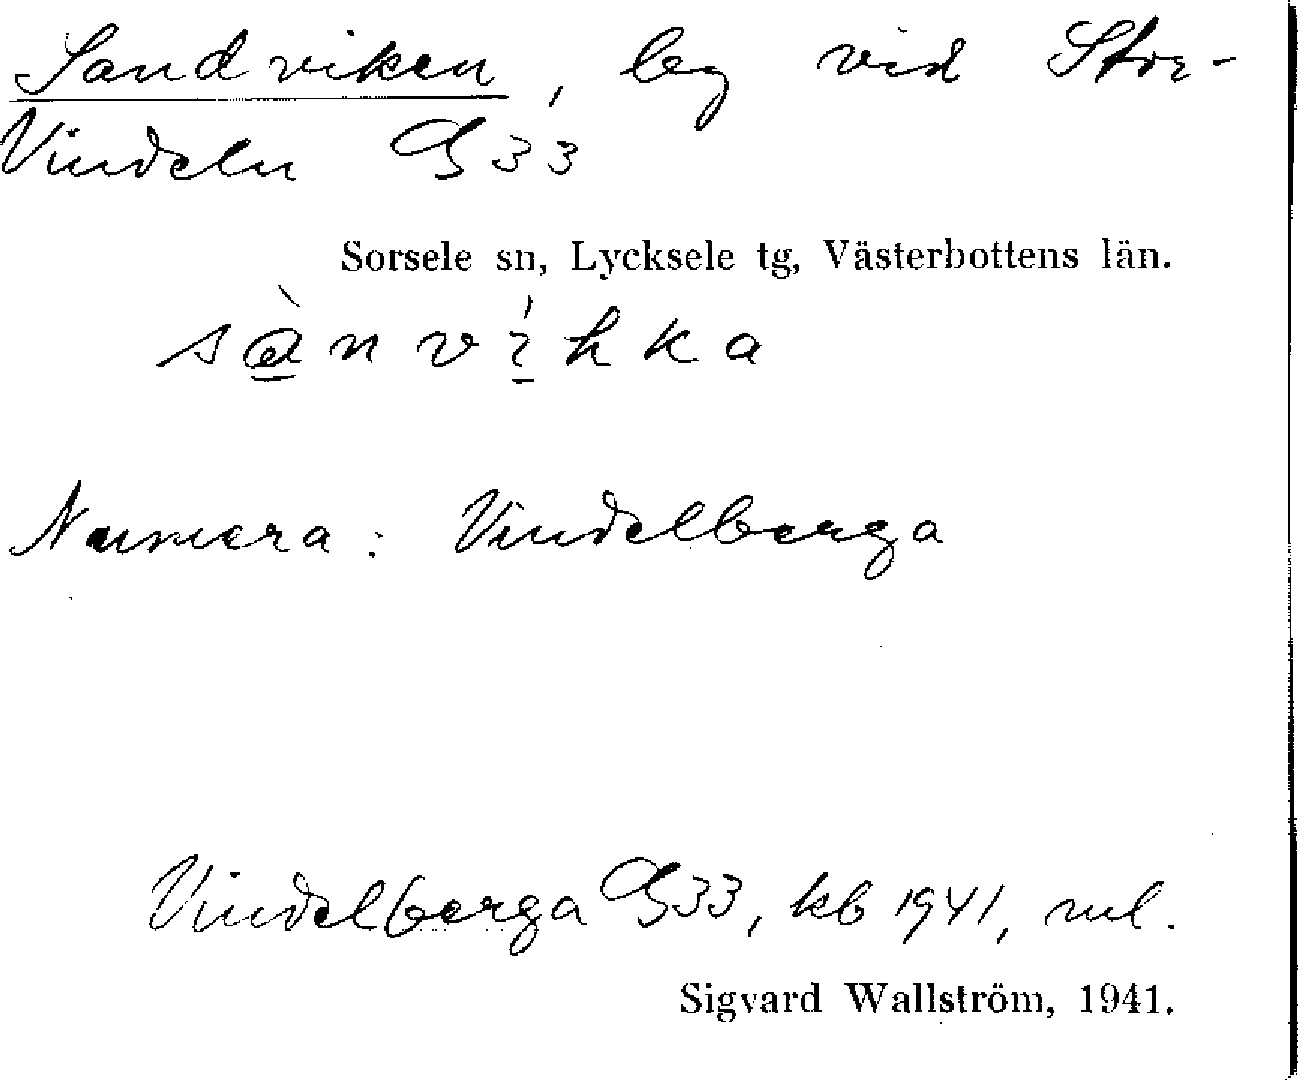 Sandviken, lbg vid Stor-
Vindeln G 33
Sorsele sn, Lycksele tg, Västerbottens län.
Numera: Vindelberga
Vindelberga G 33, kb 1941, ml.
Sigvard Wallström, 1941.